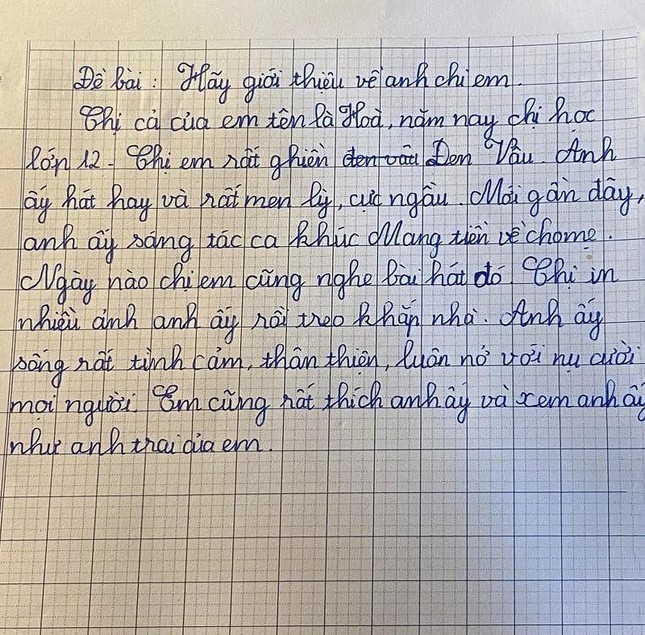 Đề bài: Hãy giới thiệu về anh chị em.
Chị cả của em tên là Hoà, năm nay chị học
lớp 12. Chị em rất ghiền đen vâu Đen Vâu. Anh
ấy hát hay và rất men lỳ, cực ngầu. Mới gần đây,
anh ấy sáng tác ca khúc Mang tiền về cho mẹ.
Ngày nào chị em cũng nghe bài hát đó. Chị in
nhiều ảnh anh ấy rồi treo khắp nhà. Anh ấy
sống rất tình cảm, thân thiện, luôn nở với nụ cười
mọi người. Em cũng rất thích anh ấy và xem anh ấy
như anh trai của em.